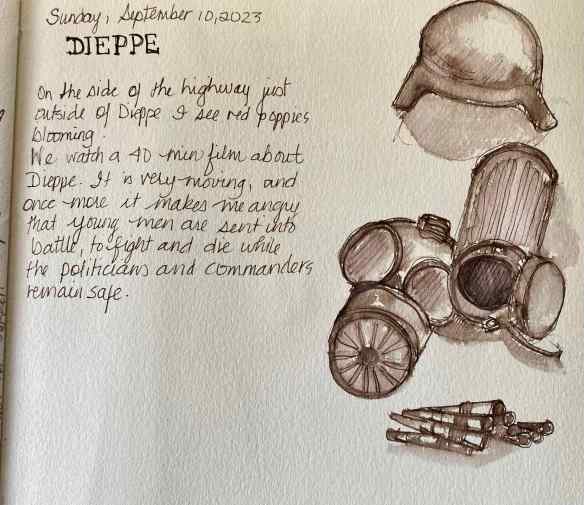 Sunday, September 10, 2023
DIEPPE
On the side of the highway just
outside of Dieppe I see red poppies
blooming.
We watch a 40 min film about
Dieppe. It is very moving, and
once more it makes me angry
that young men are sent into
battle, to fight and die while
the politicians and commanders
remain safe.